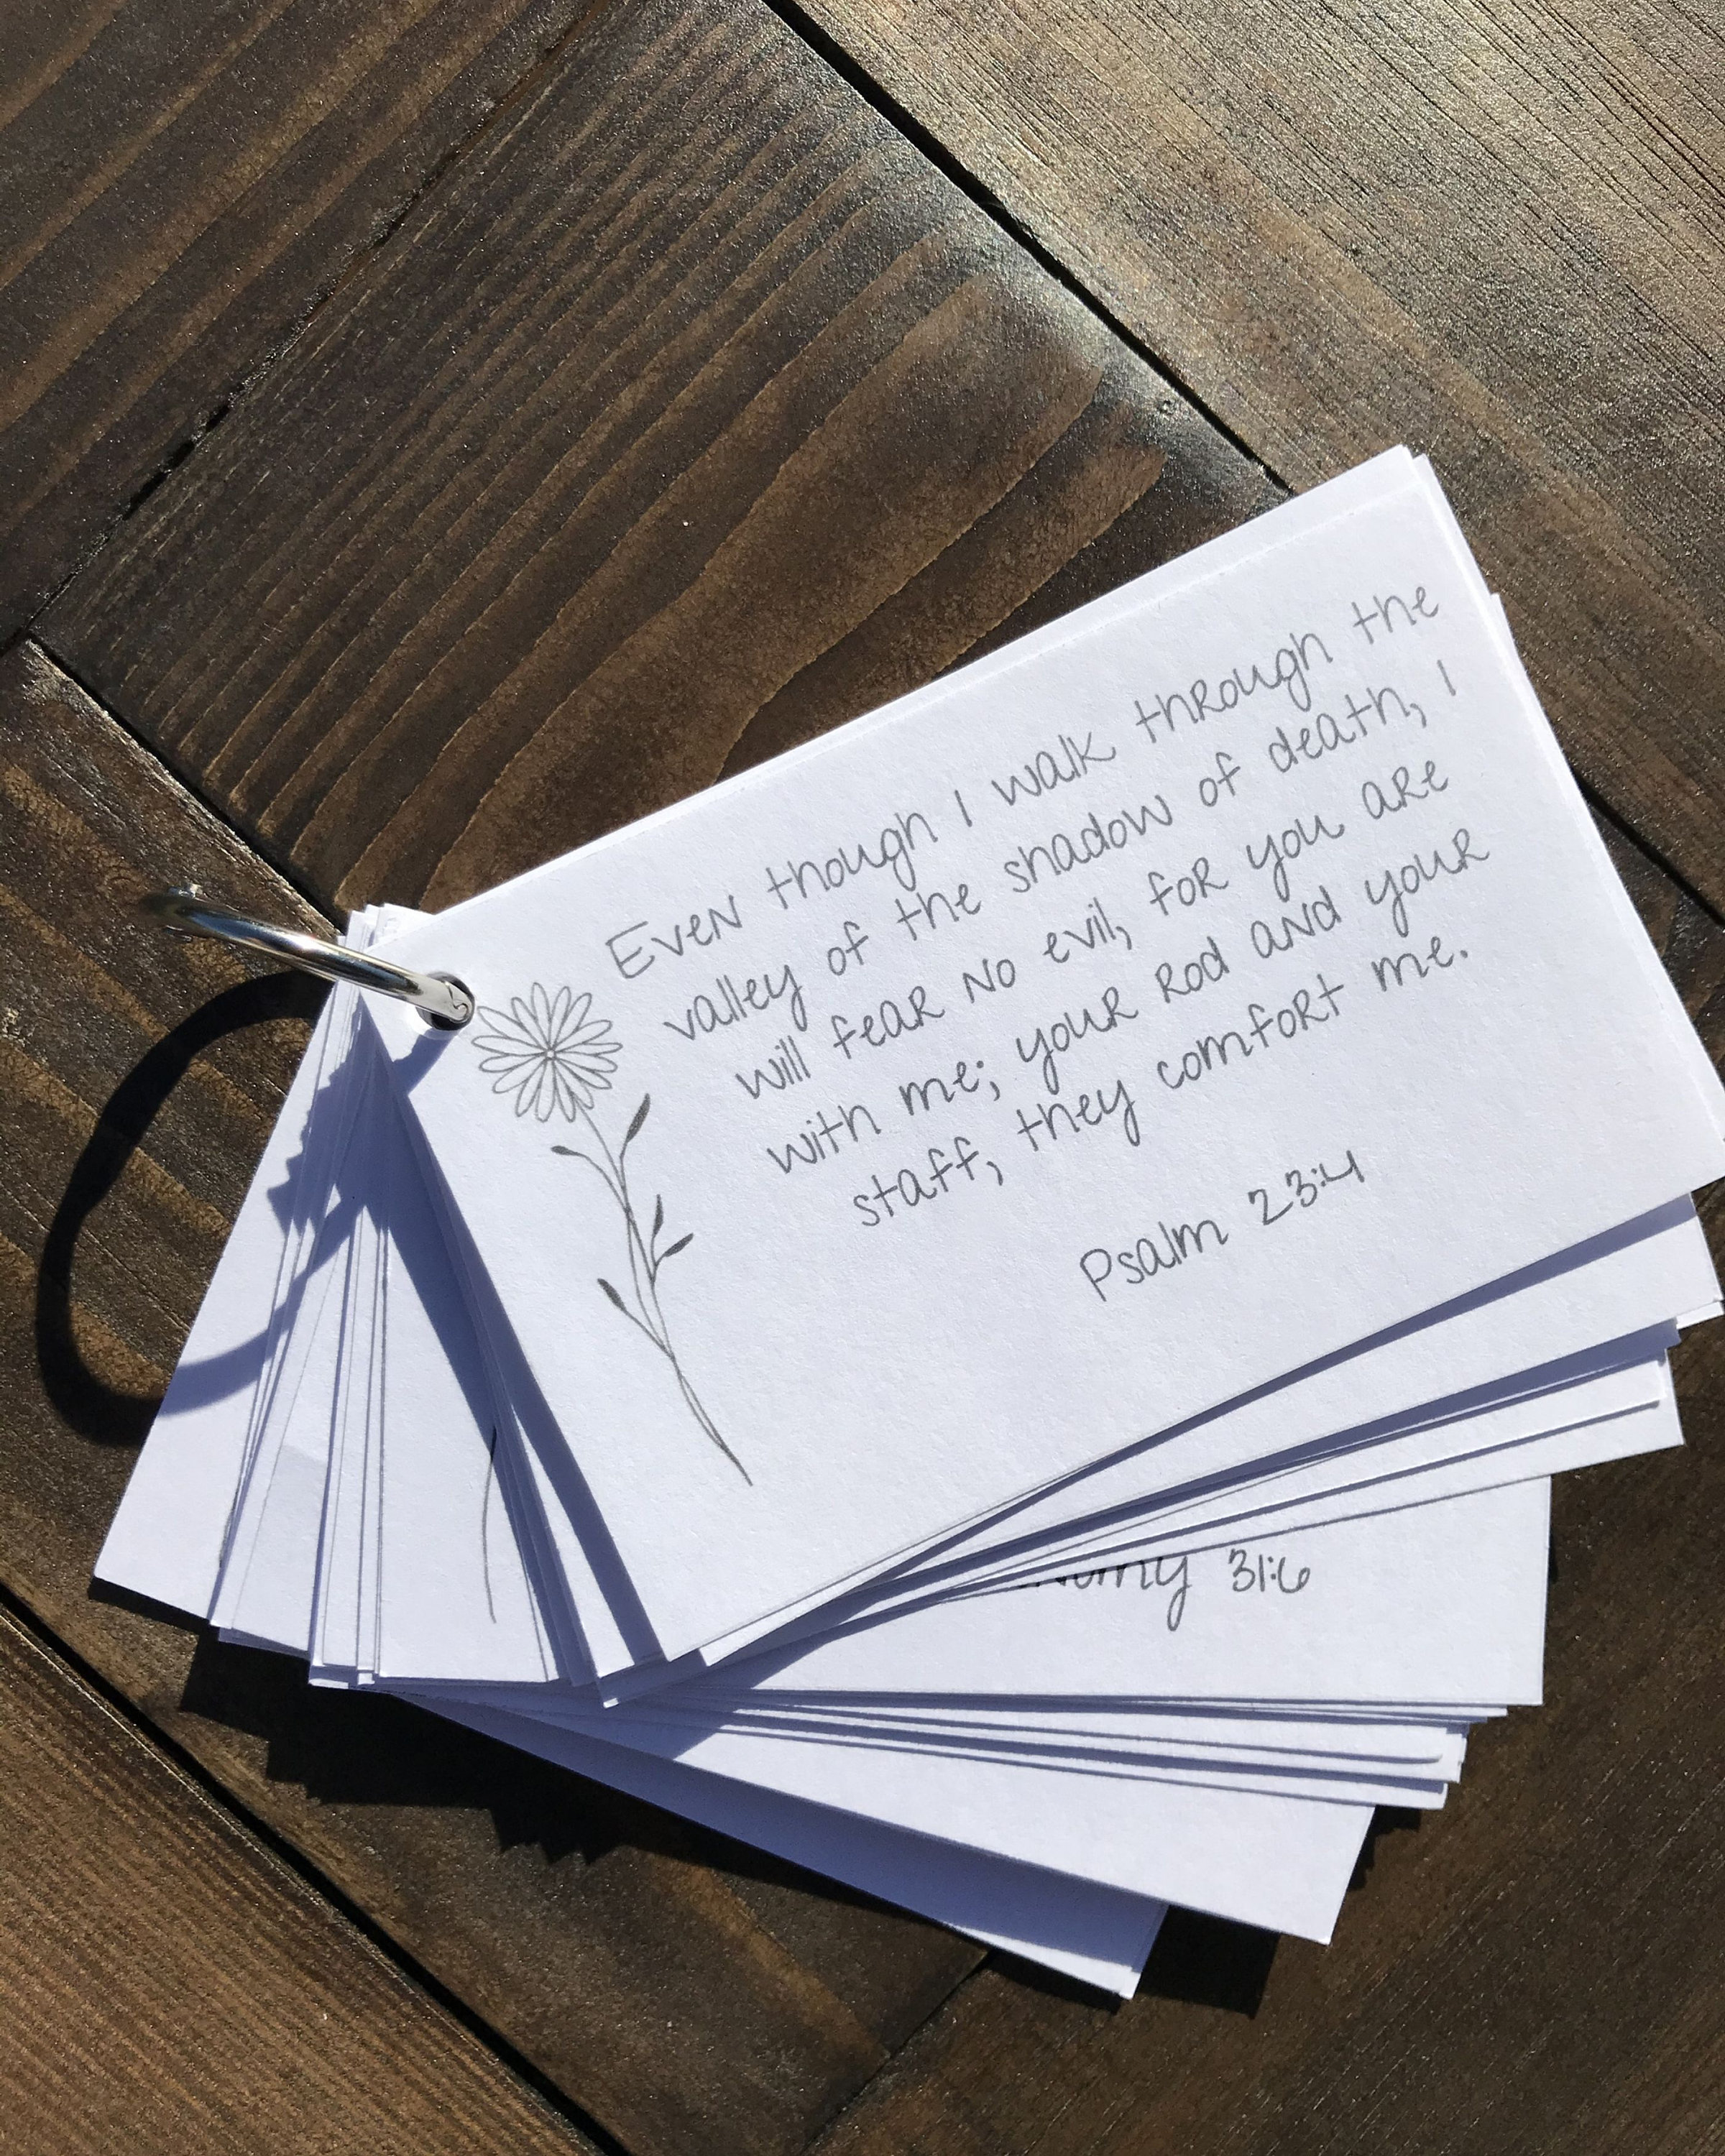 Even though I walk through the
valley of the shadow of death, I
will fear no evil, for you are
with me; your rod and your
staff, they comfort me.
Psalm 23:4
31:6